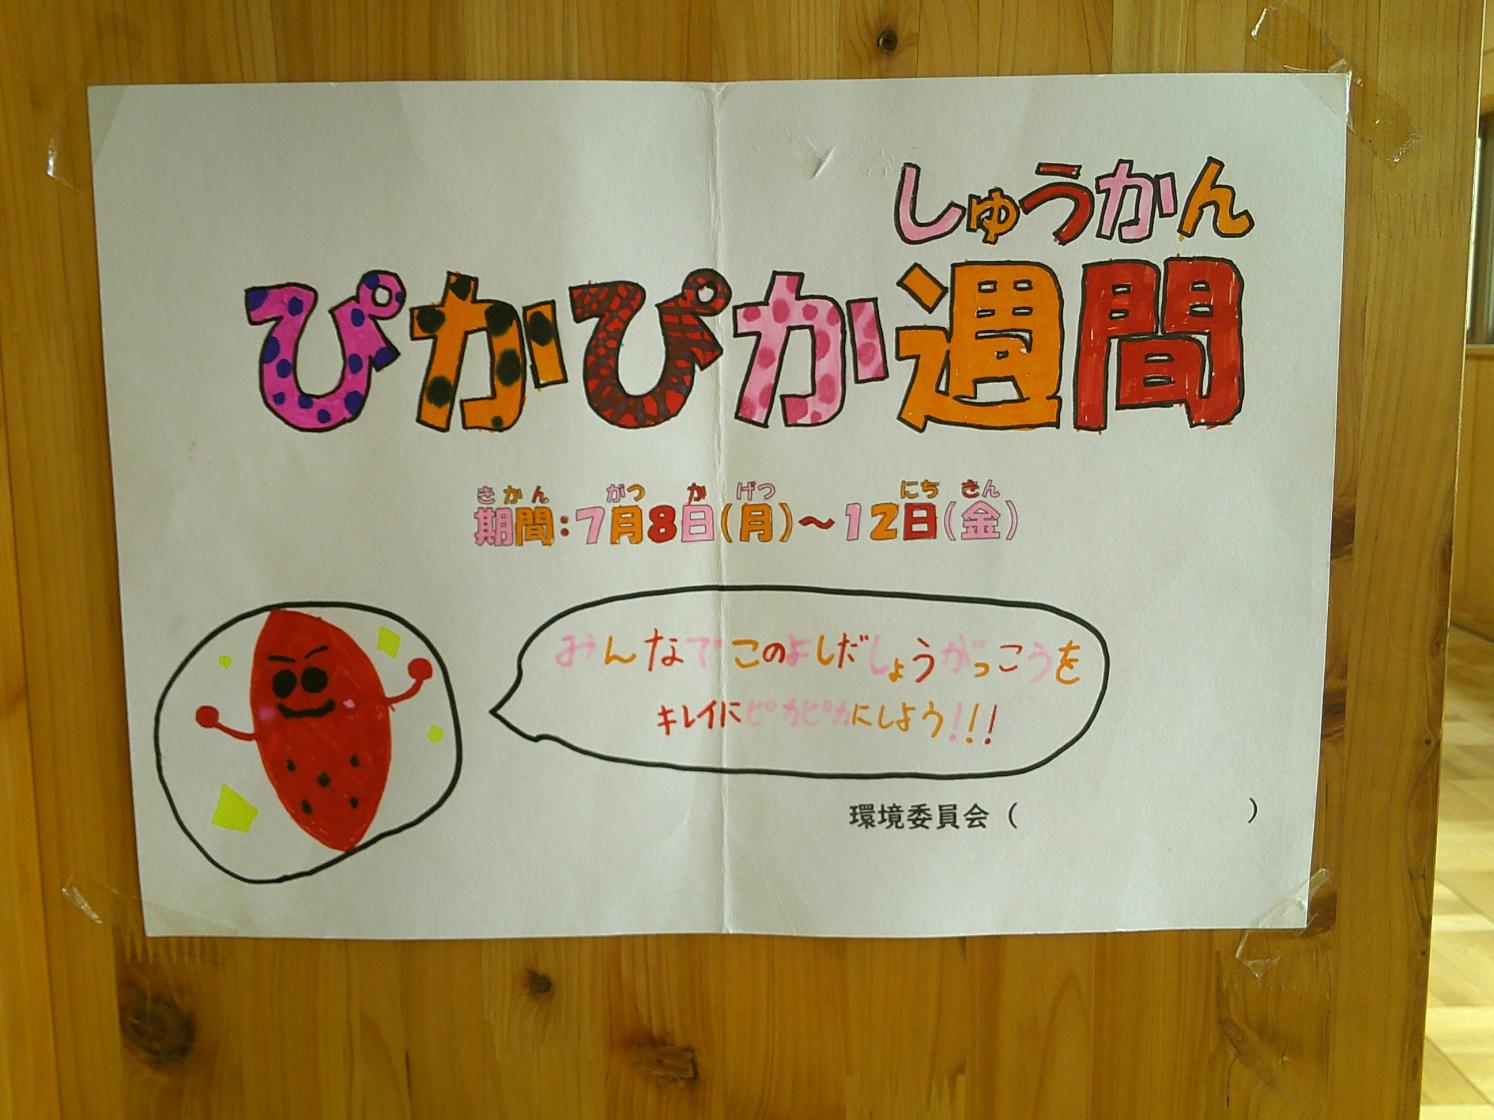 しゅうかん
ぴかぴか週間
きかん がつ か げつ にち きん
期間:7月8日(月)~12日(金)
みんなでこのよしだしょうがっこうを
キレイにピカピカにしよう!!!
環境委員会( )